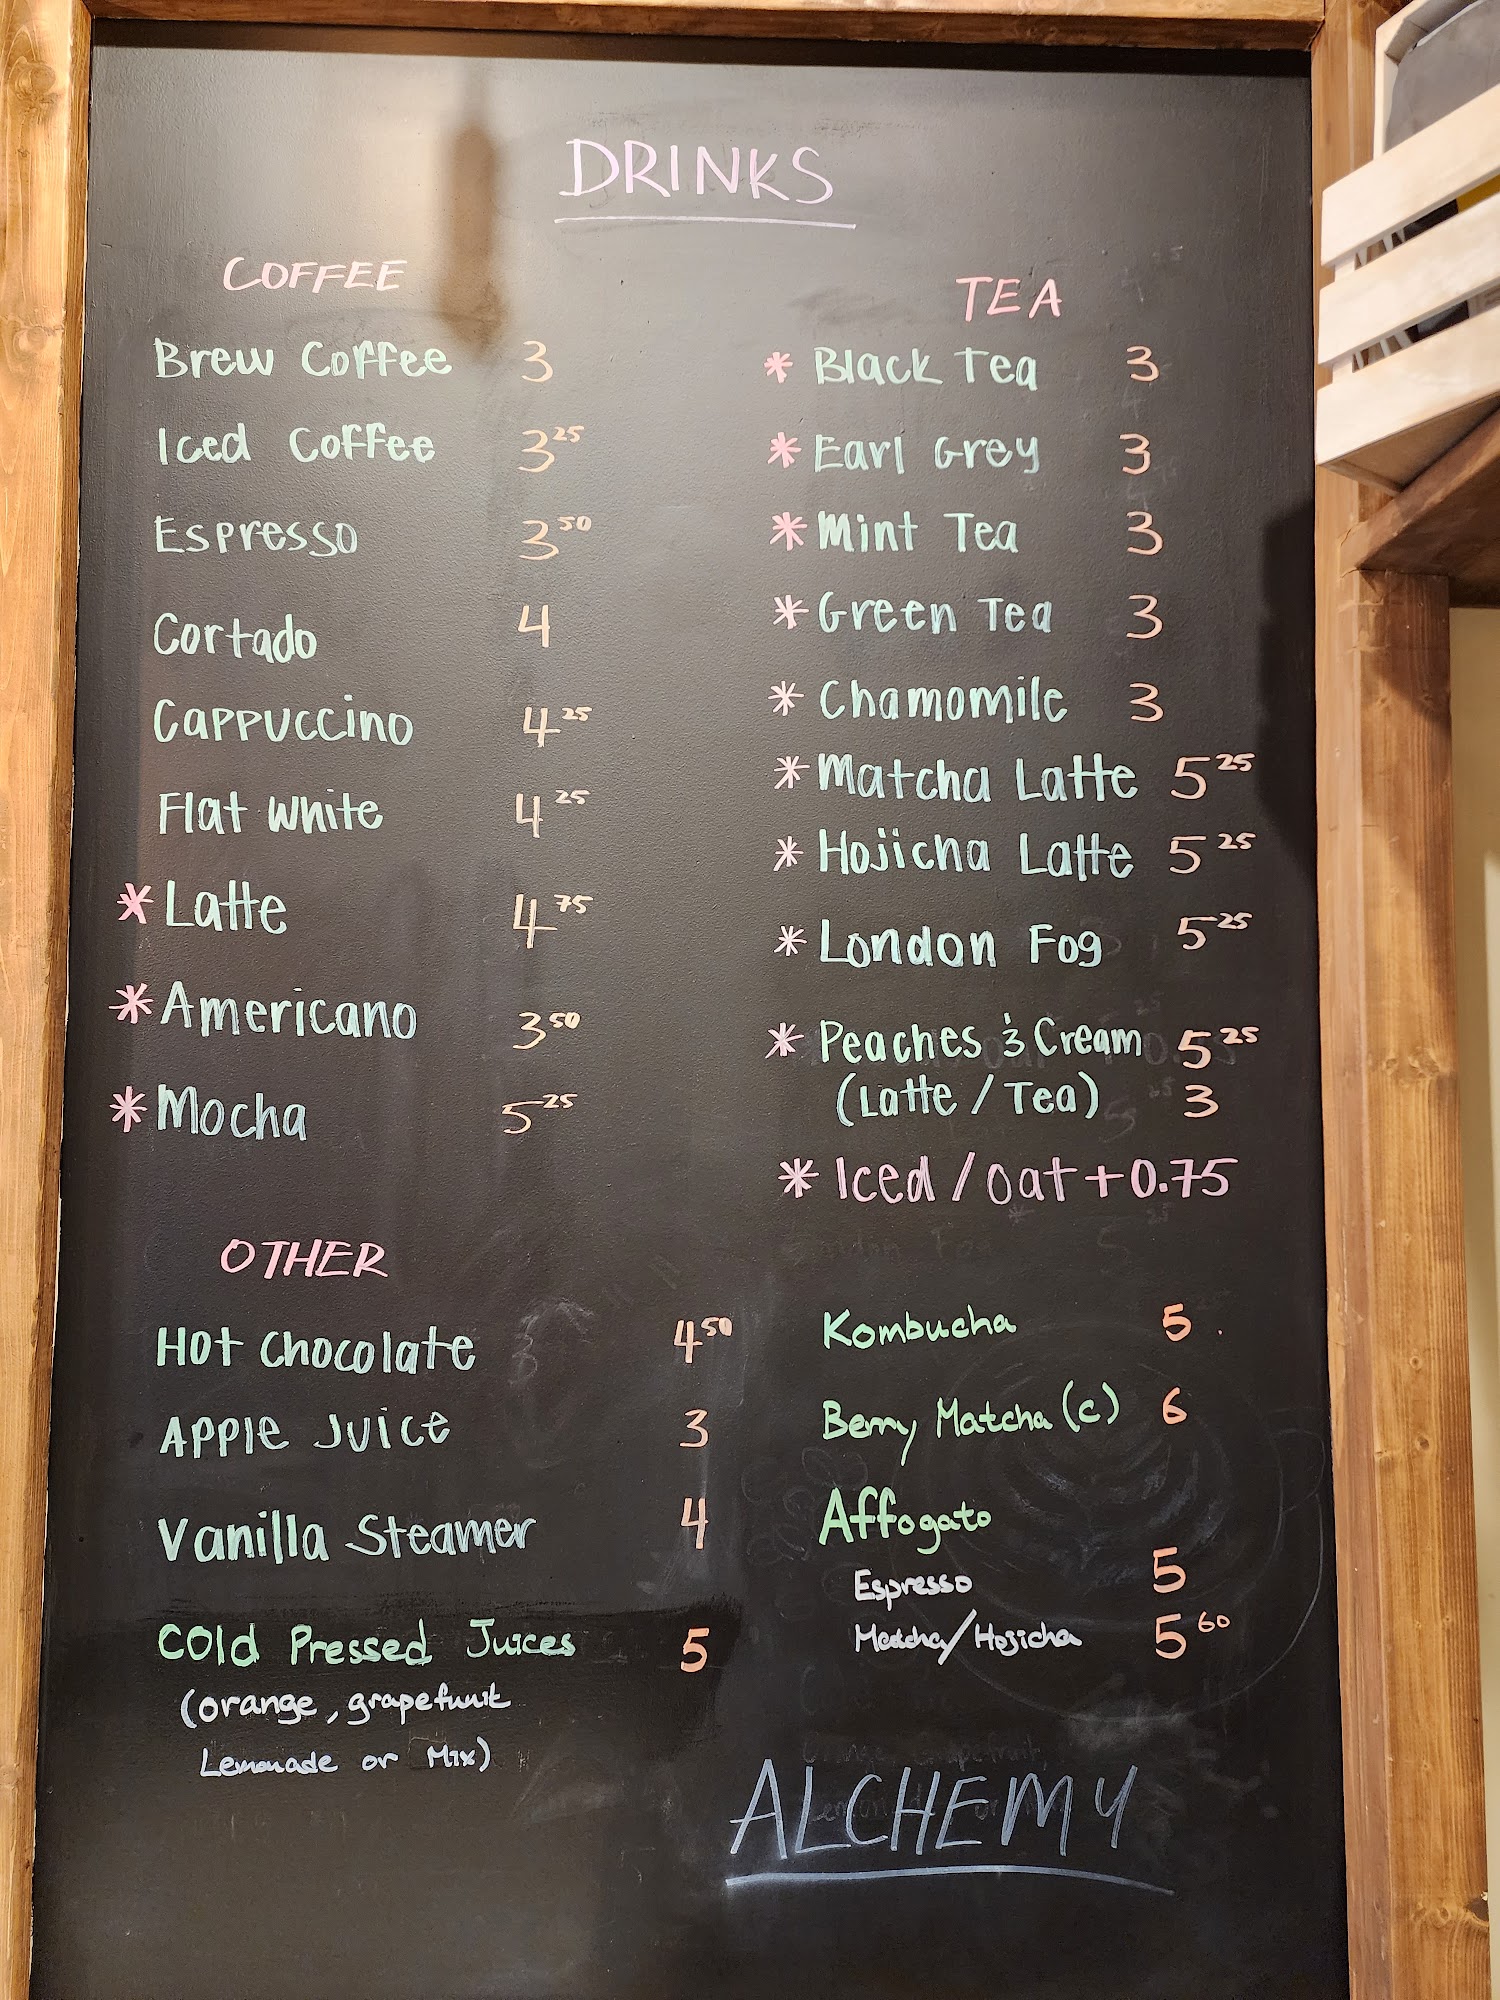 DRINKS
COFFEE
Brew Coffee 3
Iced Coffee 3 25
Espresso 3 50
Cortado 4
Cappuccino 4 25
Flat White 4 25
* Latte 4 75
* Americano 3 50
* Mocha 5 25
OTHER
Hot Chocolate 4 50
Apple Juice 3
Vanilla Steamer 4
Cold Pressed Juices 5
(orange, grapefruit
Lemonade or Mix)
TEA
* Black Tea 3
* Earl Grey 3
* Mint Tea 3
* Green Tea 3
* Chamomile 3
* Matcha Latte 5 25
* Hojicha Latte 5 25
* London Fog 5 25
* Peaches & Cream 5 25
(Latte / Tea) 3
* Iced / Oat + 0.75
Kombucha 5
Berry Matcha (c) 6
Affogato
Espresso 5
Matcha/Hojicha 5 60
ALCHEMY